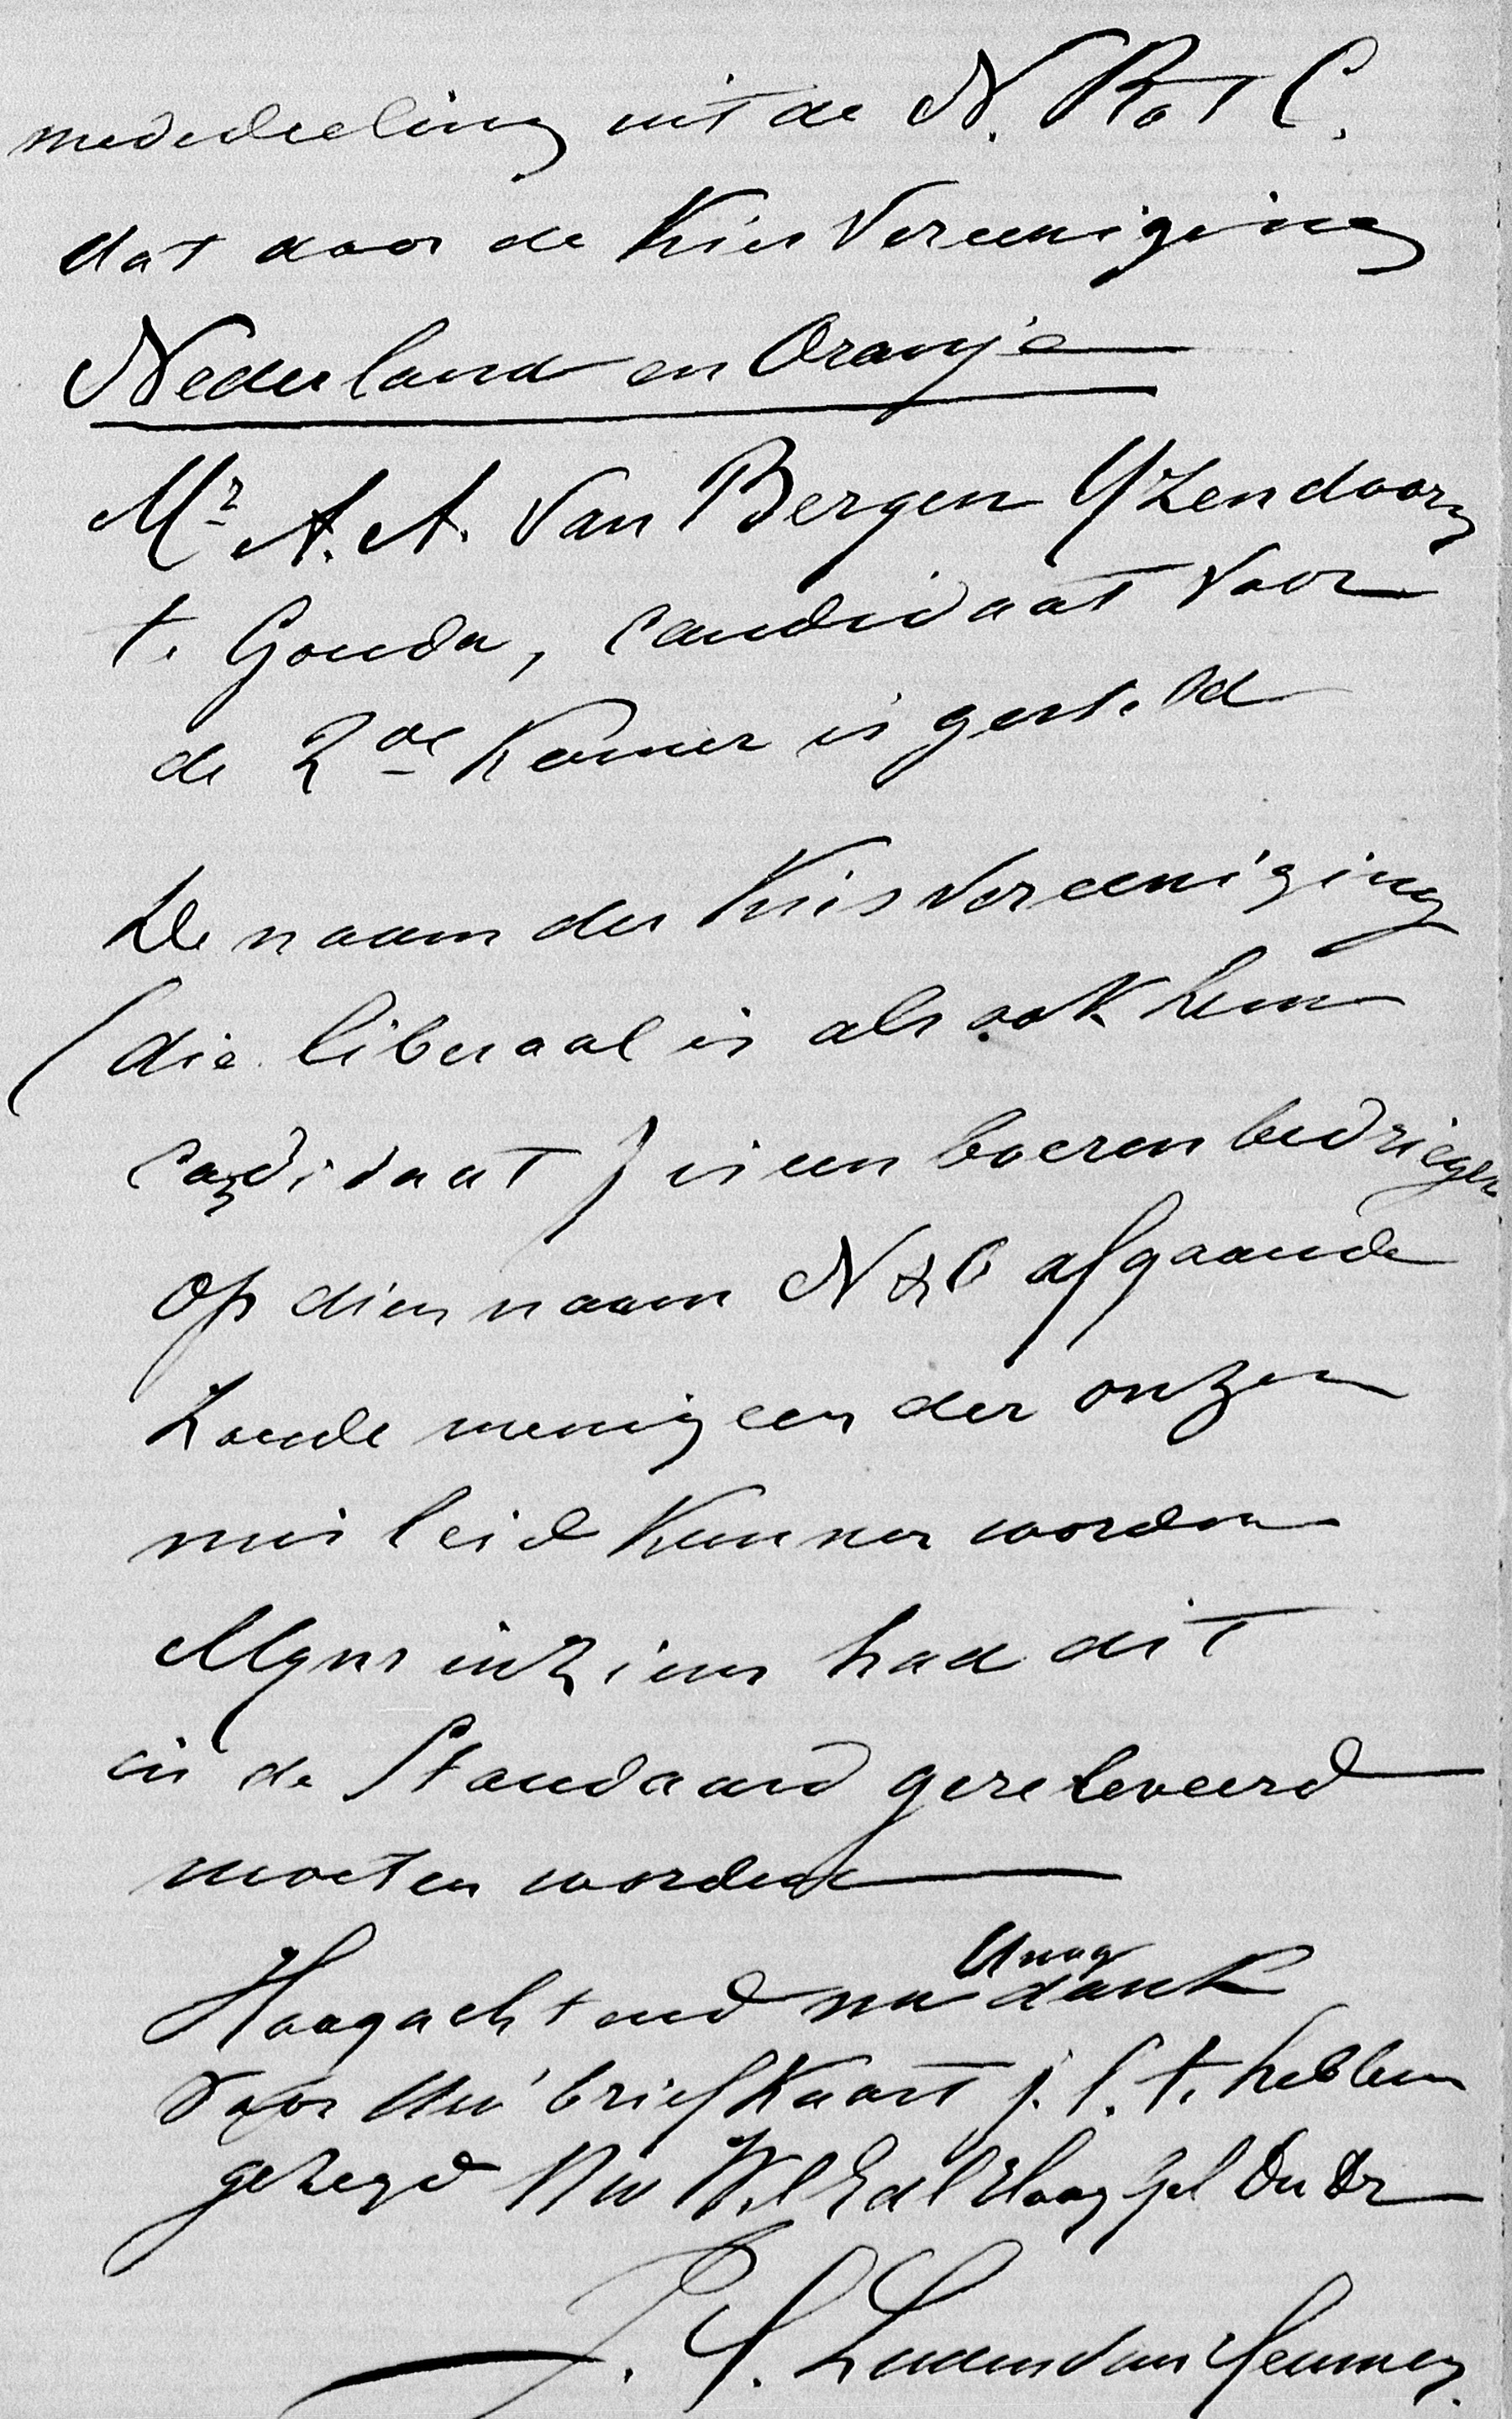 mededeeling uit de N. Rot C.
dat door de Kies Vereeniging
Nederland en Oranje
Mr A. A. van Bergen IJzendoorn
te Gouda, candidaat voor
de 2de Kamer is gesteld
De naam der Kiesvereeniging
(die liberaal is als ook hun
candidaat) is een boerenbedriegerij
Op dien naam N & O afgaande
Zoude menigeen der onzen
misleid kunnen worden
Mijns inziens had dit
in de Standaard gereleveerd
moeten worden
Hoogachtend na U nog dank
voor Uw briefkaart j.l. te hebben
gezegd Uw WelEdel Hoog Gel Du Dr